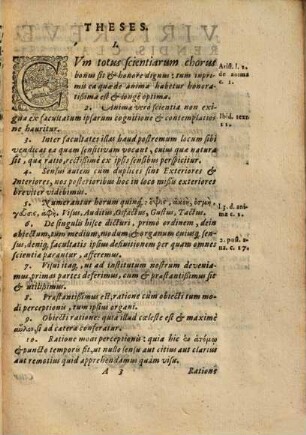 THESES.
I.
CVm totus scientiarum chorus
bonus sit & honore dignus: tum inpri-
mis ea quæ de anima habetur honora-
tissima est & longè optima.
Arist. l. 1.
de anima
c. 1.
2. Anima verò scientia non exi-
gua ex facultatum ipsarum cognitione & contemplatione
hauritur.
3. Inter facultates illas haud postremum locum sibi
vendicat ea quam sensitivam vocant, cuius quæ natura
sit, qua ratio, rectissimè ex ipsis sensibus perspicitur.
4. Sensus autem cum duplices sint Exteriores &
Interiores, nos posterioribus hoc in loco missis exteriores
breviter videbimus.
5. Numerantur horum quinque,
Visus, Auditus, Olfactus, Gustus, Tactus.
l. 3. de
anima
c. 1.
6. De singulis bisce dicturi, primò ordinem, dein
obiectum, simul medium, modum & organum eiusque sen-
sus, deniq; facultatis ipsius definitionem per quam omnes
scientia parantur, afferemus.
2. post.
c. 17.
7. Visui itaq;, ut ad institutum nostrum devenia-
mus, primas partes deferimus, cum & præstantissimus sit
& utilissimus.
8. Præstantissimus est: ratione cùm obiecti tum mo-
di perceptionis, tum ipsius organi.
9. Obiecti ratione: quia illud cæleste est & maximè
si ad cætera conferatur.
10. Ratione modi perceptionis: quia hic ἐν ἀτόμῳ
& puncto temporis fit, ut nullo sensu aut citius aut clarius
aut remotius quid apprehendamus quàm visu.
A 3
Ratione